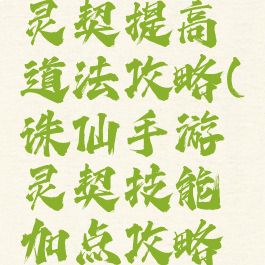 灵契提高
道法攻略(
诛仙手游
灵契技能
加点攻略